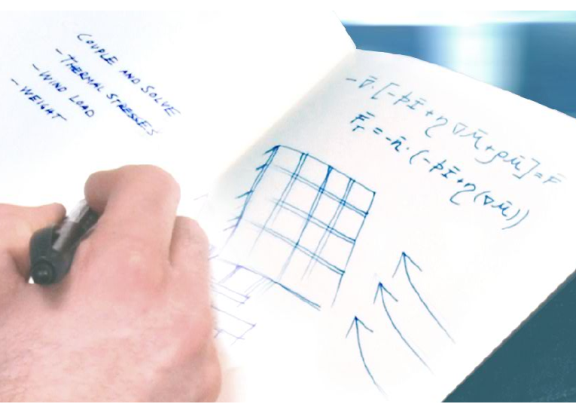 COUPLE AND SOLVE
- THERMAL STRESSES
- WIND LOAD
- WEIGHT
-∇̄·[-pĪ+η∇ū+ρū]=F̄
F̄_T=-n̄·(-pĪ+η(∇ū))